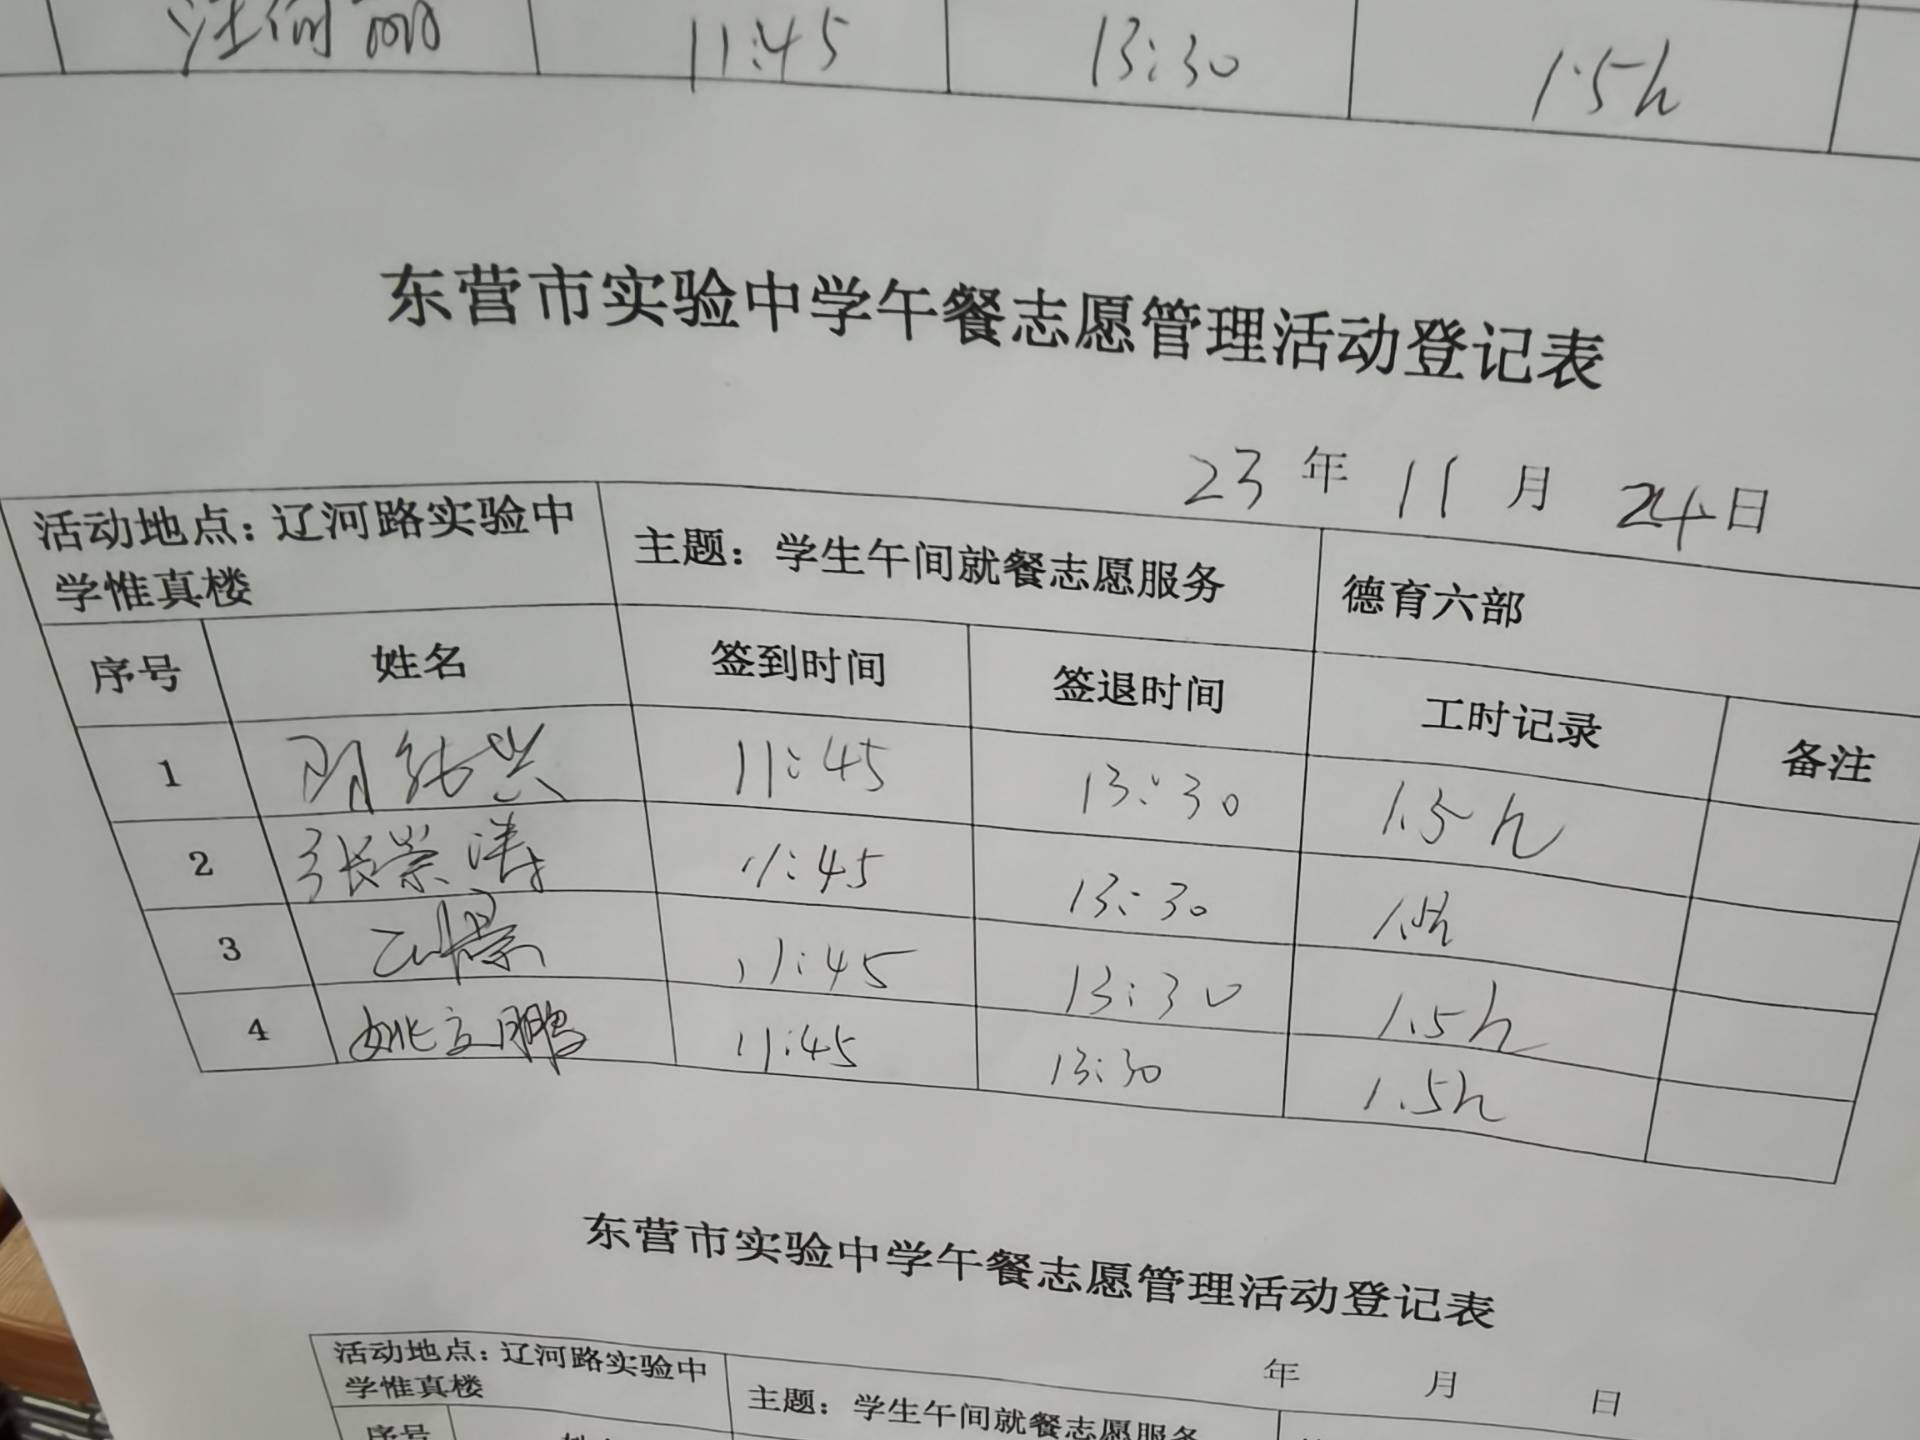 11:45 13:30 1.5h
东营市实验中学午餐志愿管理活动登记表
23年11月24日
活动地点：辽河路实验中学惟真楼 主题：学生午间就餐志愿服务 德育六部
序号 姓名 签到时间 签退时间 工时记录 备注
1 11:45 13:30 1.5h
2 张崇涛 11:45 13:30
3 11:45 13:30 1.5h
4 姚立鹏 11:45 13:30 1.5h
东营市实验中学午餐志愿管理活动登记表
年 月 日
活动地点：辽河路实验中学惟真楼 主题：学生午间就餐志愿服务
序号